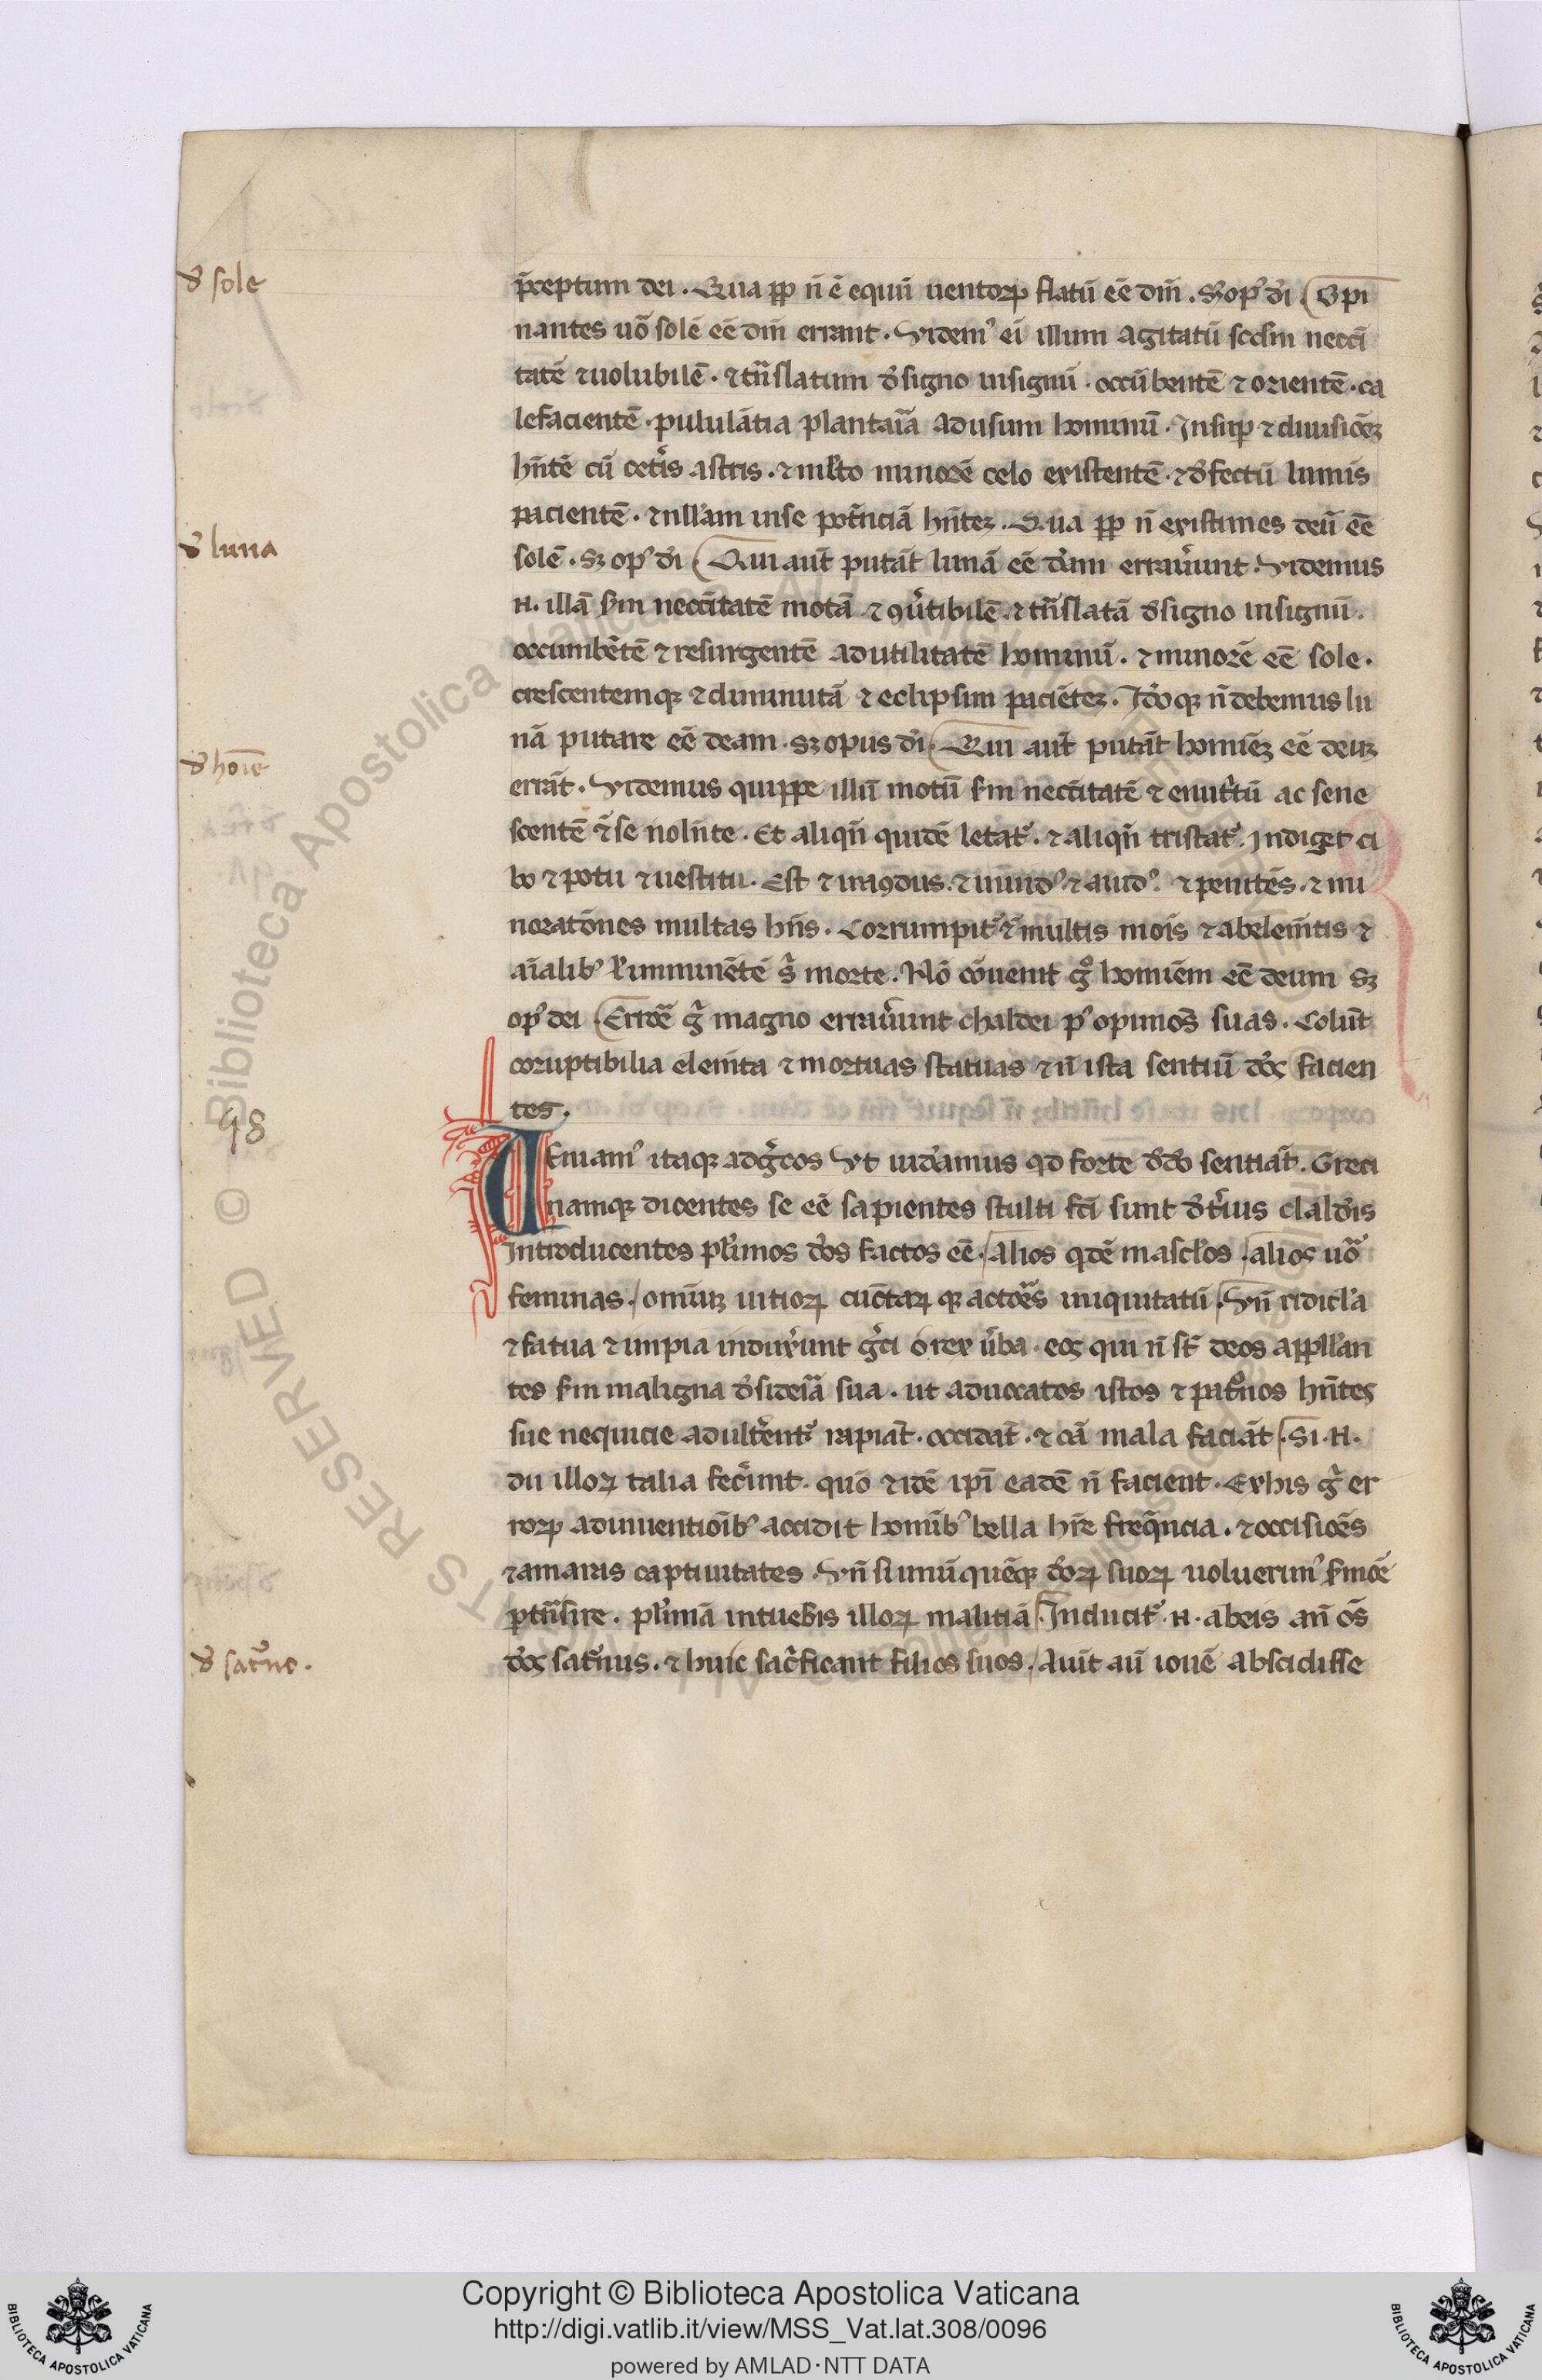 ꝺ̉ sole
p̄ceptum dei . Qua ꝓp̄ n̄ ē equū uentoꝝ flatū eē dm̄ . S; op⁹ d̉i Opi
nantes uō solē eē dm̄ errant . Videm⁹ ei illum agitatū scdm necci
tatē ⁊ uolubilē . ⁊ tn̄slatum ꝺ̉ signo in signū . occūbentē ⁊ orientē . ca
lefacientē . pululātia plantaria ad usum hominū . Insup̱ ⁊ diuisiōez
hn̄tē cū cet̉is astris . ⁊ mlto minorē celo existentē . ⁊ ꝺ̉fectū lumis
pacientē . ⁊ nllam in se potenciā hn̄tez . Qua ꝓp̄ n̄ existimes deū eē
ꝺ̉ luna
solē . s; op⁹ d̉i Qui aūt putāt lunā eē d̉am errauerūt . Videmus
.n. illā sm̄ neccitatē motā ⁊ ꝯủtibilē ⁊ tn̄slatā ꝺ̉ signo in signū .
occumbētē ⁊ resurgentē ad utilitatē hominū . ⁊ minorē eē sole .
crescentemqꝫ ⁊ diminutā ⁊ eclipsim paciētez . Idỏqꝫ n̄ debemus lu
ꝺ̉ hoīe
nā putare eē deam . s; opus d̉i . Qui aūt putāt homiēz eē deuz
errāt . Videmus quippe illū motū sm̄ neccitatē ⁊ enutrtū ac sene
scentē ⁊ se nolnte . Et aliqn̄ quidē letat᷑ . ⁊ aliqn̄ tristat᷑ . Indiget ci
bo ⁊ potu ⁊ uestitu . Est ⁊ iraꝯdus . ⁊ inuid⁹ ⁊ auid⁹ . ⁊ penitēs . ⁊ mi
noratōnes multas hn̄s . Corrumpit᷑ ⁊ multis mois ⁊ ab elemtis ⁊
aīalib⁹ ⁊ imminētē s̄ morte . Nō cōuenit g̊ homiēm eē deum s;
op⁹ dei . Errōe g̊ magno errauerunt chaldei p⁹ opinnōs suas . Colūt
coruptibilia elemta ⁊ mortuas statuas ⁊ n̄ ista sentiū d̉os facien
tes .
98
Veniam⁹ itaqꝫ ad g̉cos Vt uid̉amus qd forte ꝺ̉ dỏ sentiāt . Greci
namqꝫ dicentes se eē sapientes stulti fci sunt det̉ius claldeis
Introducentes pl̉imos d̉os factos eē . Alios qdē mascl̉os . alios uō
feminas . omiuz uitioꝝ cūctaꝝqꝫ actores iniquitatū . Vn̄ ridicl̉a
⁊ fatua ⁊ impia induxerunt g̉ci o rex ủba . eos qui n̄ st̄ deos appll̉an
tes sm̄ maligna ꝺ̉sideria sua . ut aduocatos istos ⁊ patronos hn̄tes
sue nequicie adultent᷑ rapiāt . occidāt . ⁊ oīa mala faciāt . Si .n.
dii illoꝝ talia fecerunt . quō ⁊ idē ipi eadē n̄ facient . Ex his g̊ er
roꝝ adinuentioib⁹ accidit homib⁹ bella hr̄e freq̄ncia . ⁊ occisiōes
⁊ amaras captiuitates . Vn̄ si unūquēqꝫ d̉oꝝ suoꝝ uoluerim⁹ smōe
p̱tn̄sire . plimā intuebis illoꝝ malitiā . Inducit᷑ .n. ab eis an̄ os̄
ꝺ̉ sat̉no .
d̉os sat̉nus . ⁊ huic sacrificant filios suos . Auit aū iouē abscidisse
Copyright © Biblioteca Apostolica Vaticana
http://digi.vatlib.it/view/MSS_Vat.lat.308/0096
powered by AMLAD·NTT DATA
BIBLIOTECA APOSTOLICA VATICANA
BIBLIOTECA APOSTOLICA VATICANA